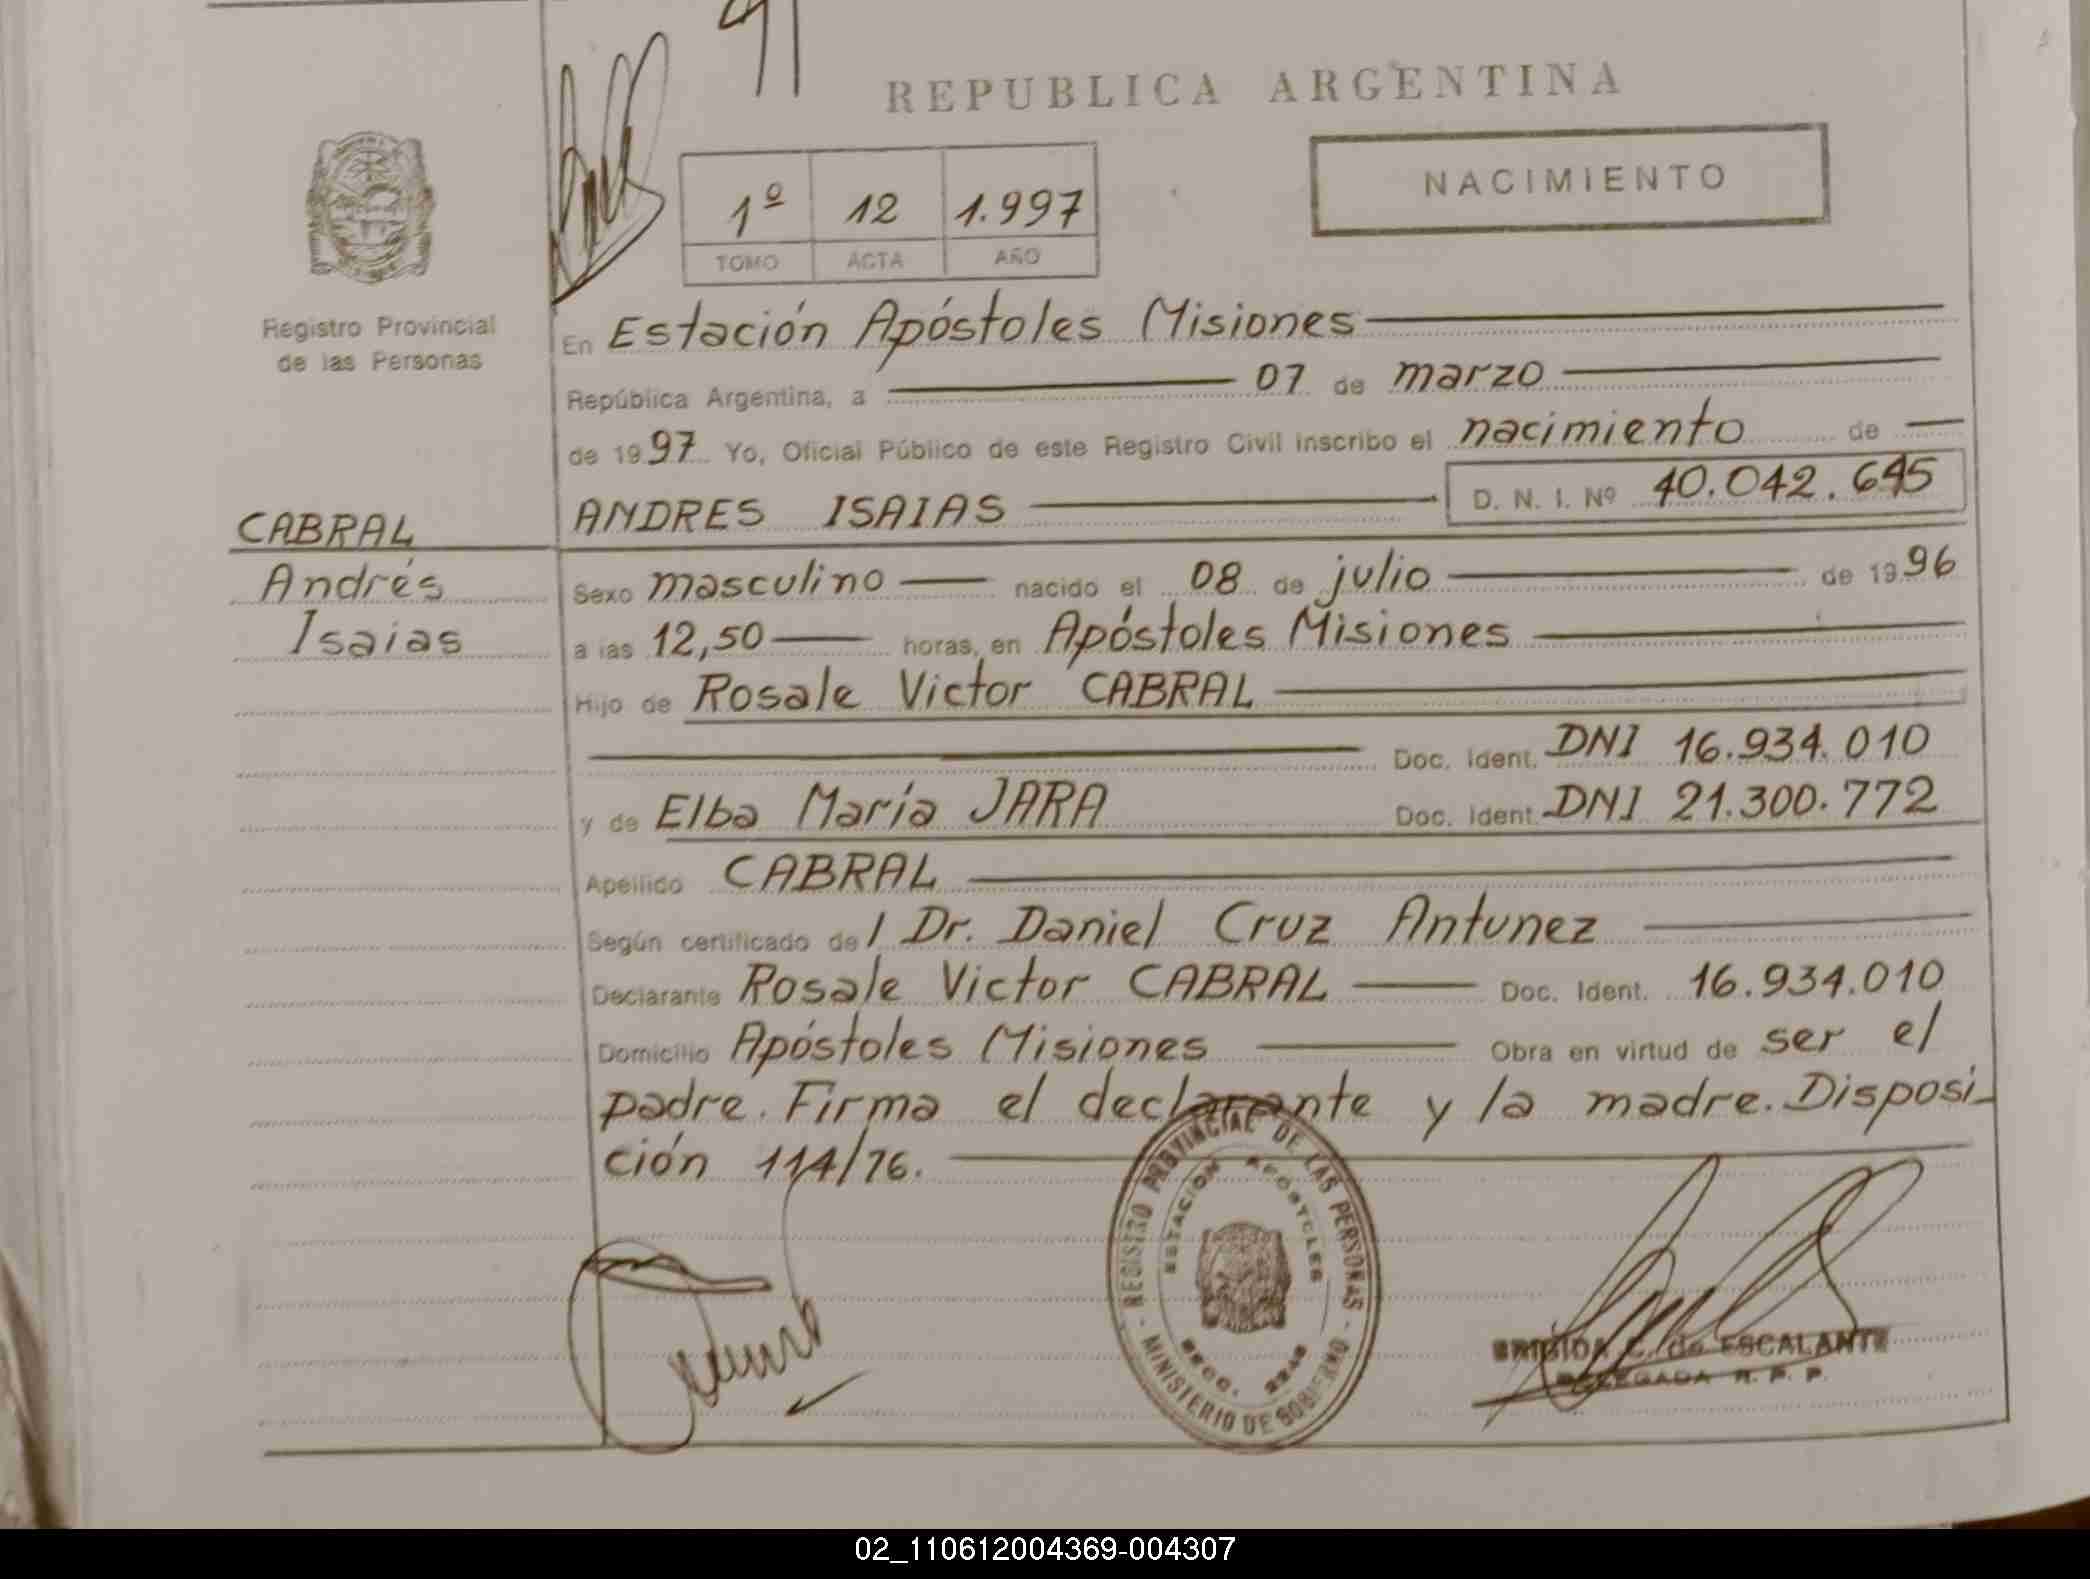 REPUBLICA ARGENTINA
NACIMIENTO
1º 12 1.997
TOMO ACTA AÑO
Registro Provincial
de las Personas
En Estación Apóstoles Misiones
República Argentina, a 07 de marzo
de 1997 Yo, Oficial Público de este Registro Civil inscribo el nacimiento de
ANDRES ISAIAS D. N. I. Nº 40.042.645
CABRAL
Andrés
Isaias
Sexo masculino nacido el 08 de julio de 1996
a las 12,50 horas, en Apóstoles Misiones
Hijo de Rosale Victor CABRAL
Doc. Ident. DNI 16.934.010
y de Elba María JARA Doc. Ident. DNI 21.300.772
Apellido CABRAL
Según certificado del Dr. Daniel Cruz Antunez
Declarante Rosale Victor CABRAL Doc. Ident. 16.934.010
Domicilio Apóstoles Misiones Obra en virtud de ser el
padre. Firma el declarante y la madre. Disposi-
ción 114/76.
REGISTRO PROVINCIAL DE LAS PERSONAS
ESTACION APOSTOLES
SECC. 2248
- MINISTERIO DE GOBIERNO -
BRIGIDA C. de ESCALANTE
DELEGADA R. P. P.
02_110612004369-004307